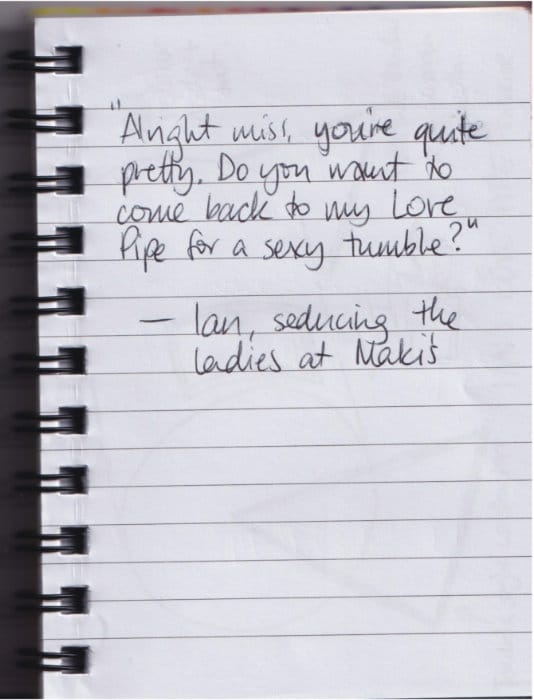 "Alright miss, you're quite
pretty. Do you want to
come back to my Love
Pipe for a sexy tumble?"
— Ian, seducing the
ladies at Maki's